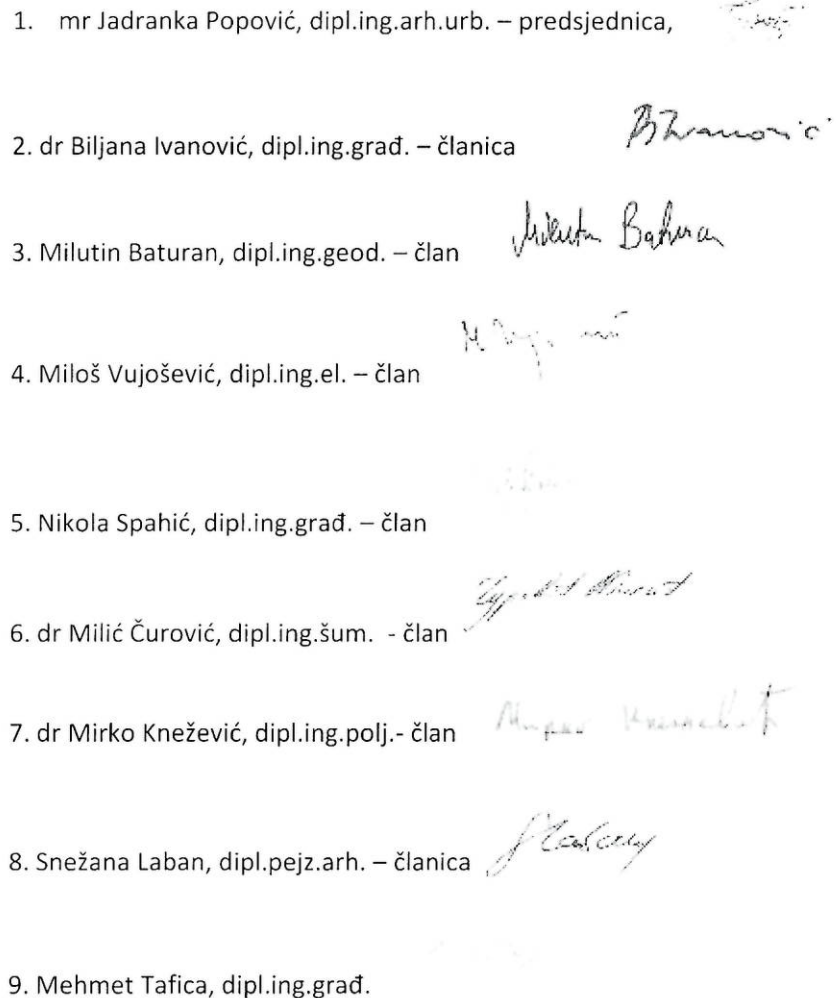 1. mr Jadranka Popović, dipl.ing.arh.urb. – predsjednica,
2. dr Biljana Ivanović, dipl.ing.građ. – članica
BIvanović
3. Milutin Baturan, dipl.ing.geod. – član
Milutin Baturan
4. Miloš Vujošević, dipl.ing.el. – član
5. Nikola Spahić, dipl.ing.građ. – član
6. dr Milić Čurović, dipl.ing.šum. - član
7. dr Mirko Knežević, dipl.ing.polj.- član
8. Snežana Laban, dipl.pejz.arh. – članica
9. Mehmet Tafica, dipl.ing.građ.